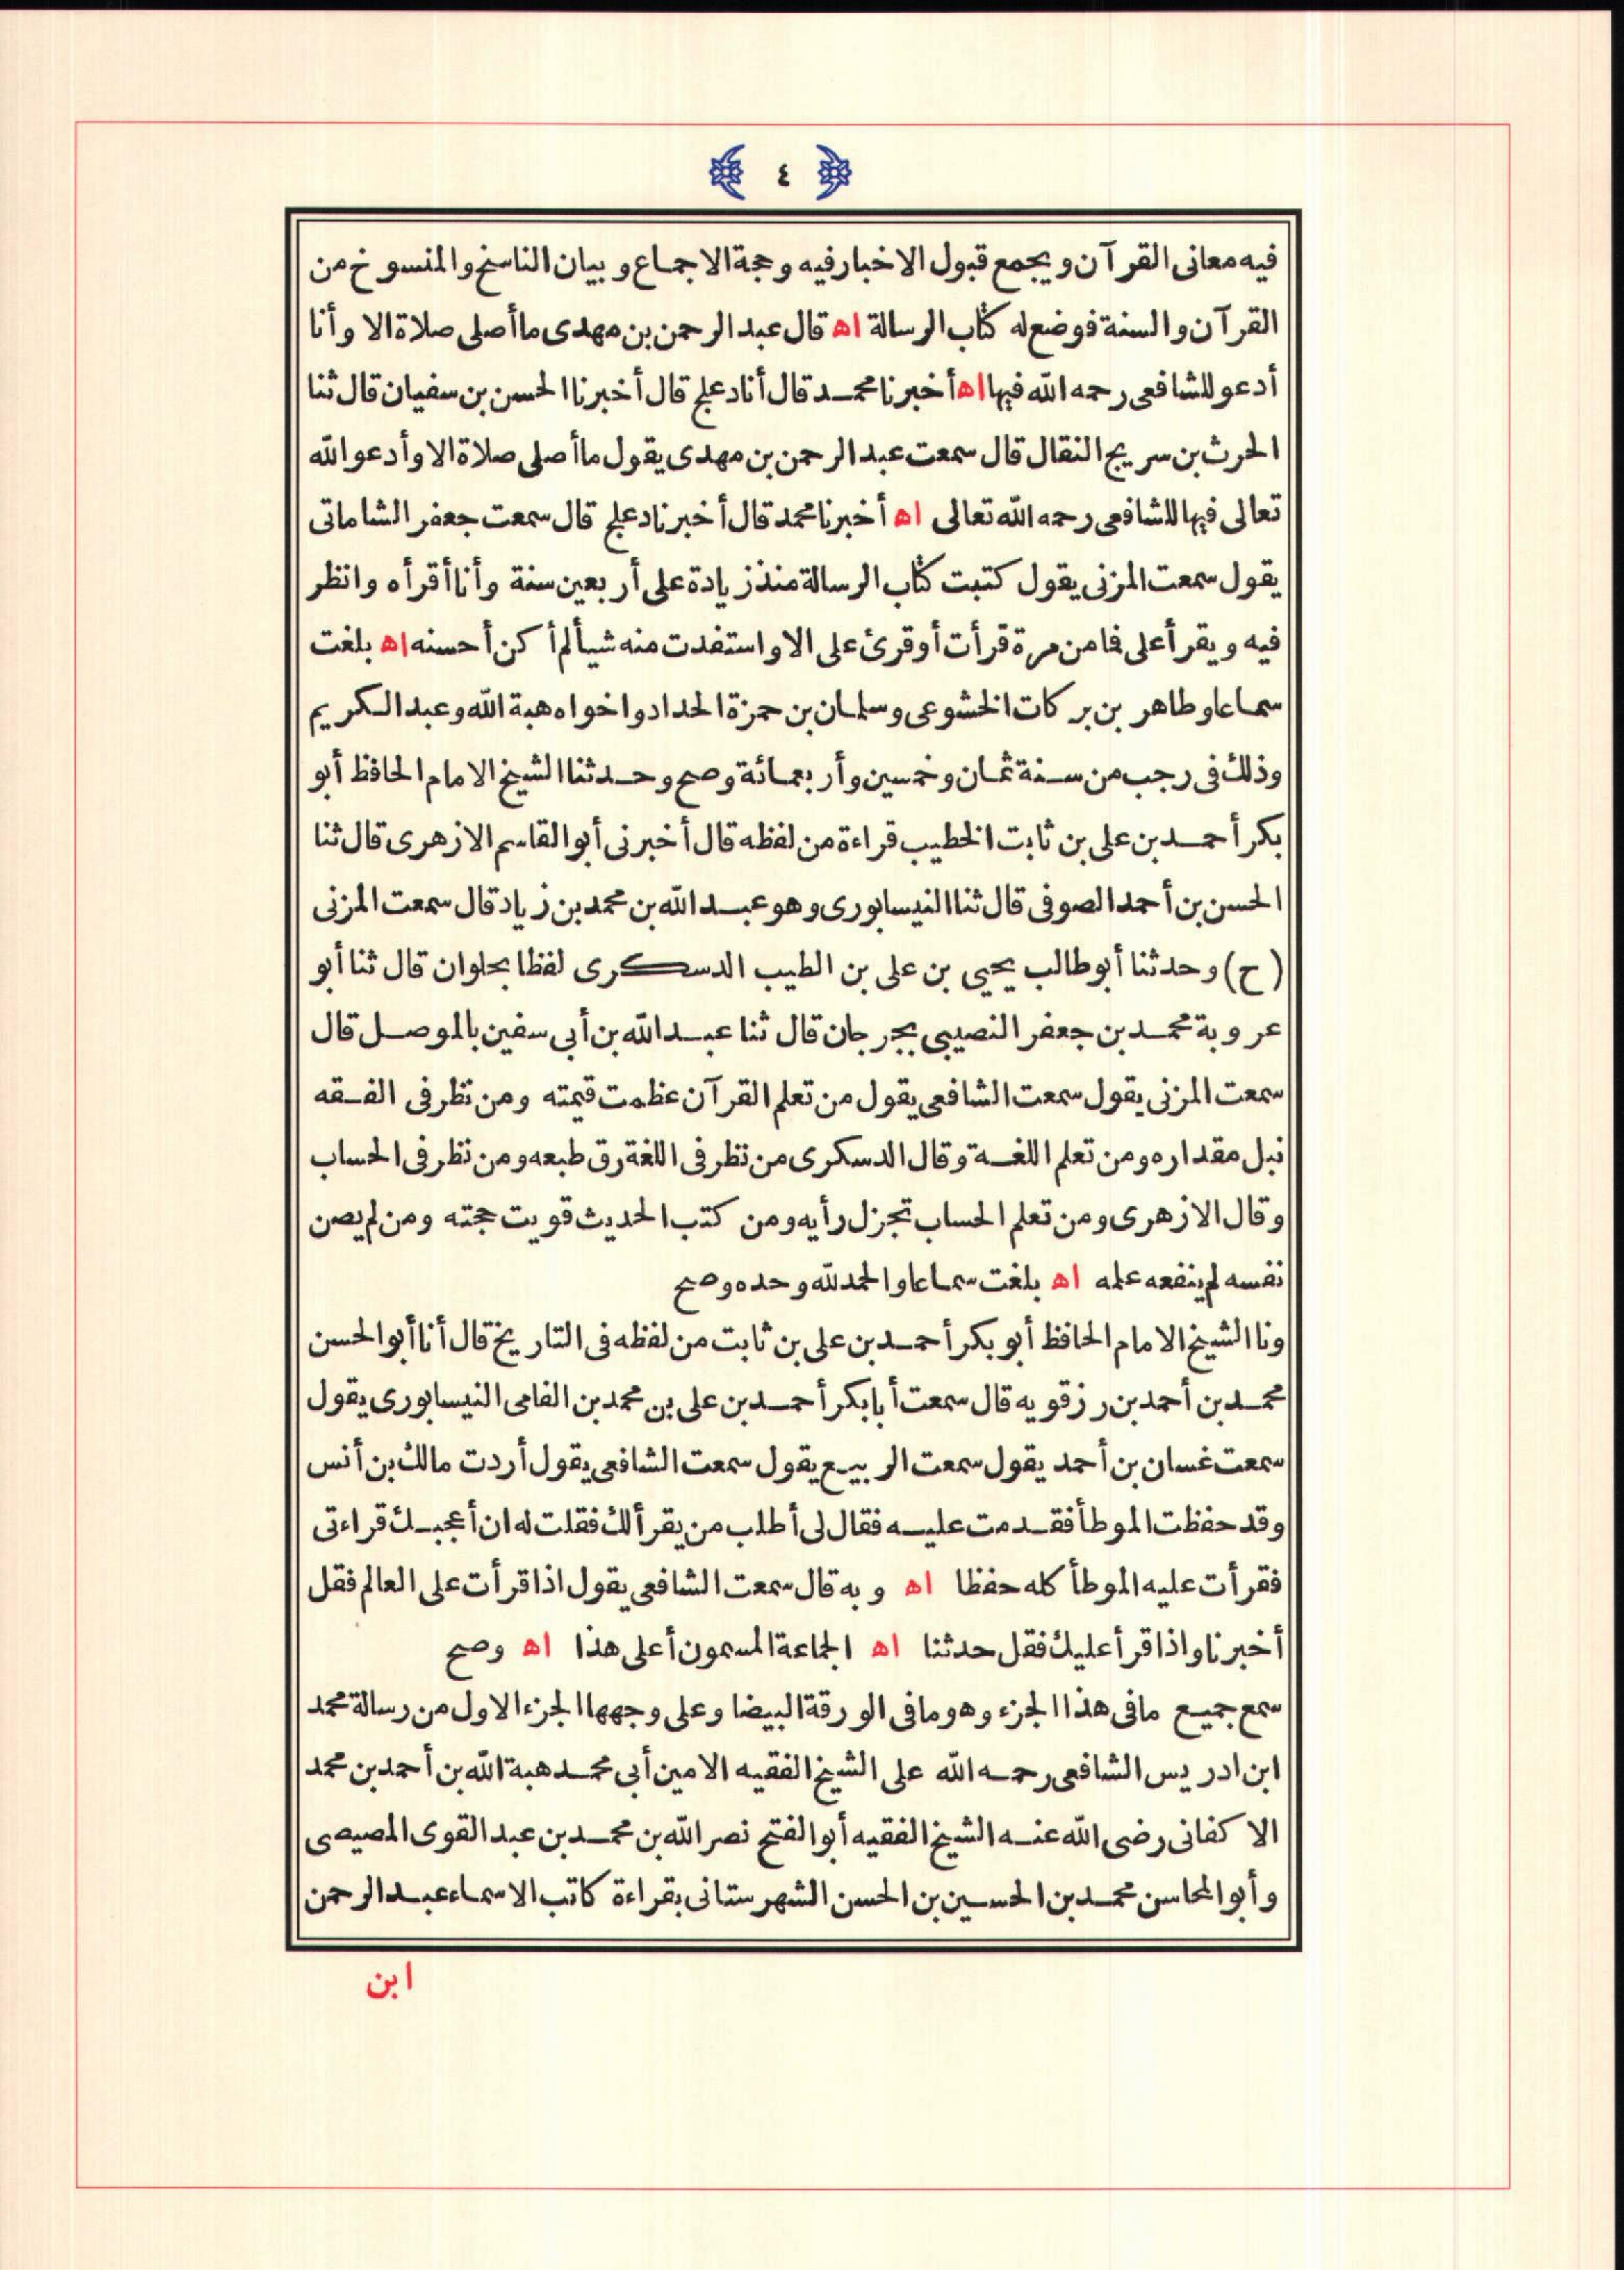 ٤
فيه معانى القرآن ويجمع قبول الاخبار فيه وحجة الاجماع وبيان الناسخ والمنسوخ من
القرآن والسنة فوضع له كتاب الرسالة اه قال عبد الرحمن بن مهدى ما أصلى صلاة الا وأنا
أدعو للشافعى رحمه الله فيها اه أخبرنا محمد قال أنا دعلج قال أخبرنا الحسن بن سفيان قال ثنا
الحرث بن سريج النقال قال سمعت عبد الرحمن بن مهدى يقول ما أصلى صلاة الا وأدعو الله
تعالى فيها للشافعى رحمه الله تعالى اه أخبرنا محمد قال أخبرنا دعلج قال سمعت جعفر الشاماتى
يقول سمعت المزنى يقول كتبت كتاب الرسالة منذ زيادة على أربعين سنة وأنا أقرأه وانظر
فيه ويقرأ على فما من مرة قرأت أو قرئ على الا واستفدت منه شيأ لم أكن أحسنه اه بلغت
سماعا وطاهر بن بركات الخشوعى وسلمان بن حمزة الحداد واخواه هبة الله وعبد الكريم
وذلك فى رجب من سنة ثمان وخمسين وأربعمائة وصح وحدثنا الشيخ الامام الحافظ أبو
بكر أحمد بن على بن ثابت الخطيب قراءة من لفظه قال أخبرنى أبو القاسم الازهرى قال ثنا
الحسن بن أحمد الصوفى قال ثنا النيسابورى وهو عبد الله بن محمد بن زياد قال سمعت المزنى
(ح) وحدثنا أبو طالب يحيى بن على بن الطيب الدسكرى لفظا بحلوان قال ثنا أبو
عروبة محمد بن جعفر النصيبى بجرجان قال ثنا عبد الله بن أبى سفين بالموصل قال
سمعت المزنى يقول سمعت الشافعى يقول من تعلم القرآن عظمت قيمته ومن نظر فى الفقه
نبل مقداره ومن تعلم اللغة وقال الدسكرى من نظر فى اللغة رق طبعه ومن نظر فى الحساب
وقال الازهرى ومن تعلم الحساب تجزل رأيه ومن كتب الحديث قويت حجته ومن لم يصن
نفسه لم ينفعه علمه اه بلغت سماعا والحمد لله وحده وصح
ونا الشيخ الامام الحافظ أبو بكر أحمد بن على بن ثابت من لفظه فى التاريخ قال أنا أبو الحسن
محمد بن أحمد بن رزقويه قال سمعت أبا بكر أحمد بن على بن محمد بن الفامى النيسابورى يقول
سمعت غسان بن أحمد يقول سمعت الربيع يقول سمعت الشافعى يقول أردت مالك بن أنس
وقد حفظت الموطأ فقدمت عليه فقال لى أطلب من يقرأ لك فقلت له ان أعجبك قراءتى
فقرأت عليه الموطأ كله حفظا اه وبه قال سمعت الشافعى يقول اذا قرأت على العالم فقل
أخبرنا واذا قرأ عليك فقل حدثنا اه الجماعة المسمون أعلى هذا اه وصح
سمع جميع ما فى هذا الجزء وهو ما فى الورقة البيضا وعلى وجهها الجزء الاول من رسالة محمد
ابن ادريس الشافعى رحمه الله على الشيخ الفقيه الامين أبى محمد هبة الله بن أحمد بن محمد
الاكفانى رضى الله عنه الشيخ الفقيه أبو الفتح نصر الله بن محمد بن عبد القوى المصيصى
وأبو المحاسن محمد بن الحسين بن الحسن الشهرستانى بقراءة كاتب الاسماء عبد الرحمن
ابن